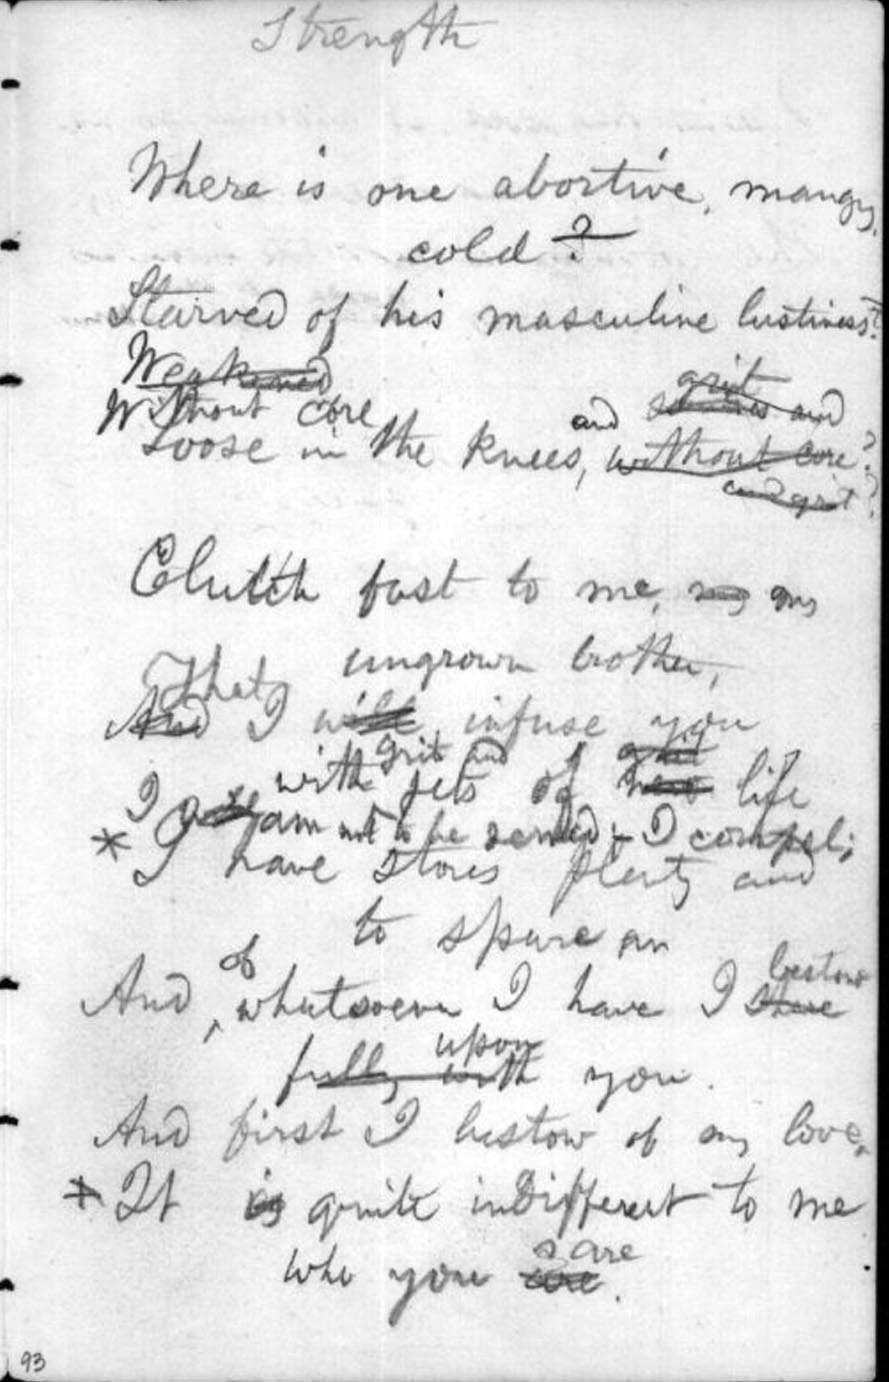 Strength
Where is one abortive, mangy,
cold?
Starved of his masculine lustiness?
Weakened
Without core
grit
and
and
Loose in the knees, without core?
and grit?
Clutch fast to me, my my
ungrown brother,
That
And I will infuse you
grit and grit
with jets of new life
I am not to be denied – I compel;
* I have stores plenty and
to spare
of
bestow
And whatsoever I have I share
upon
fully with you.
And first I bestow of my love,
* It is quite indifferent to me
are
who you are.
93